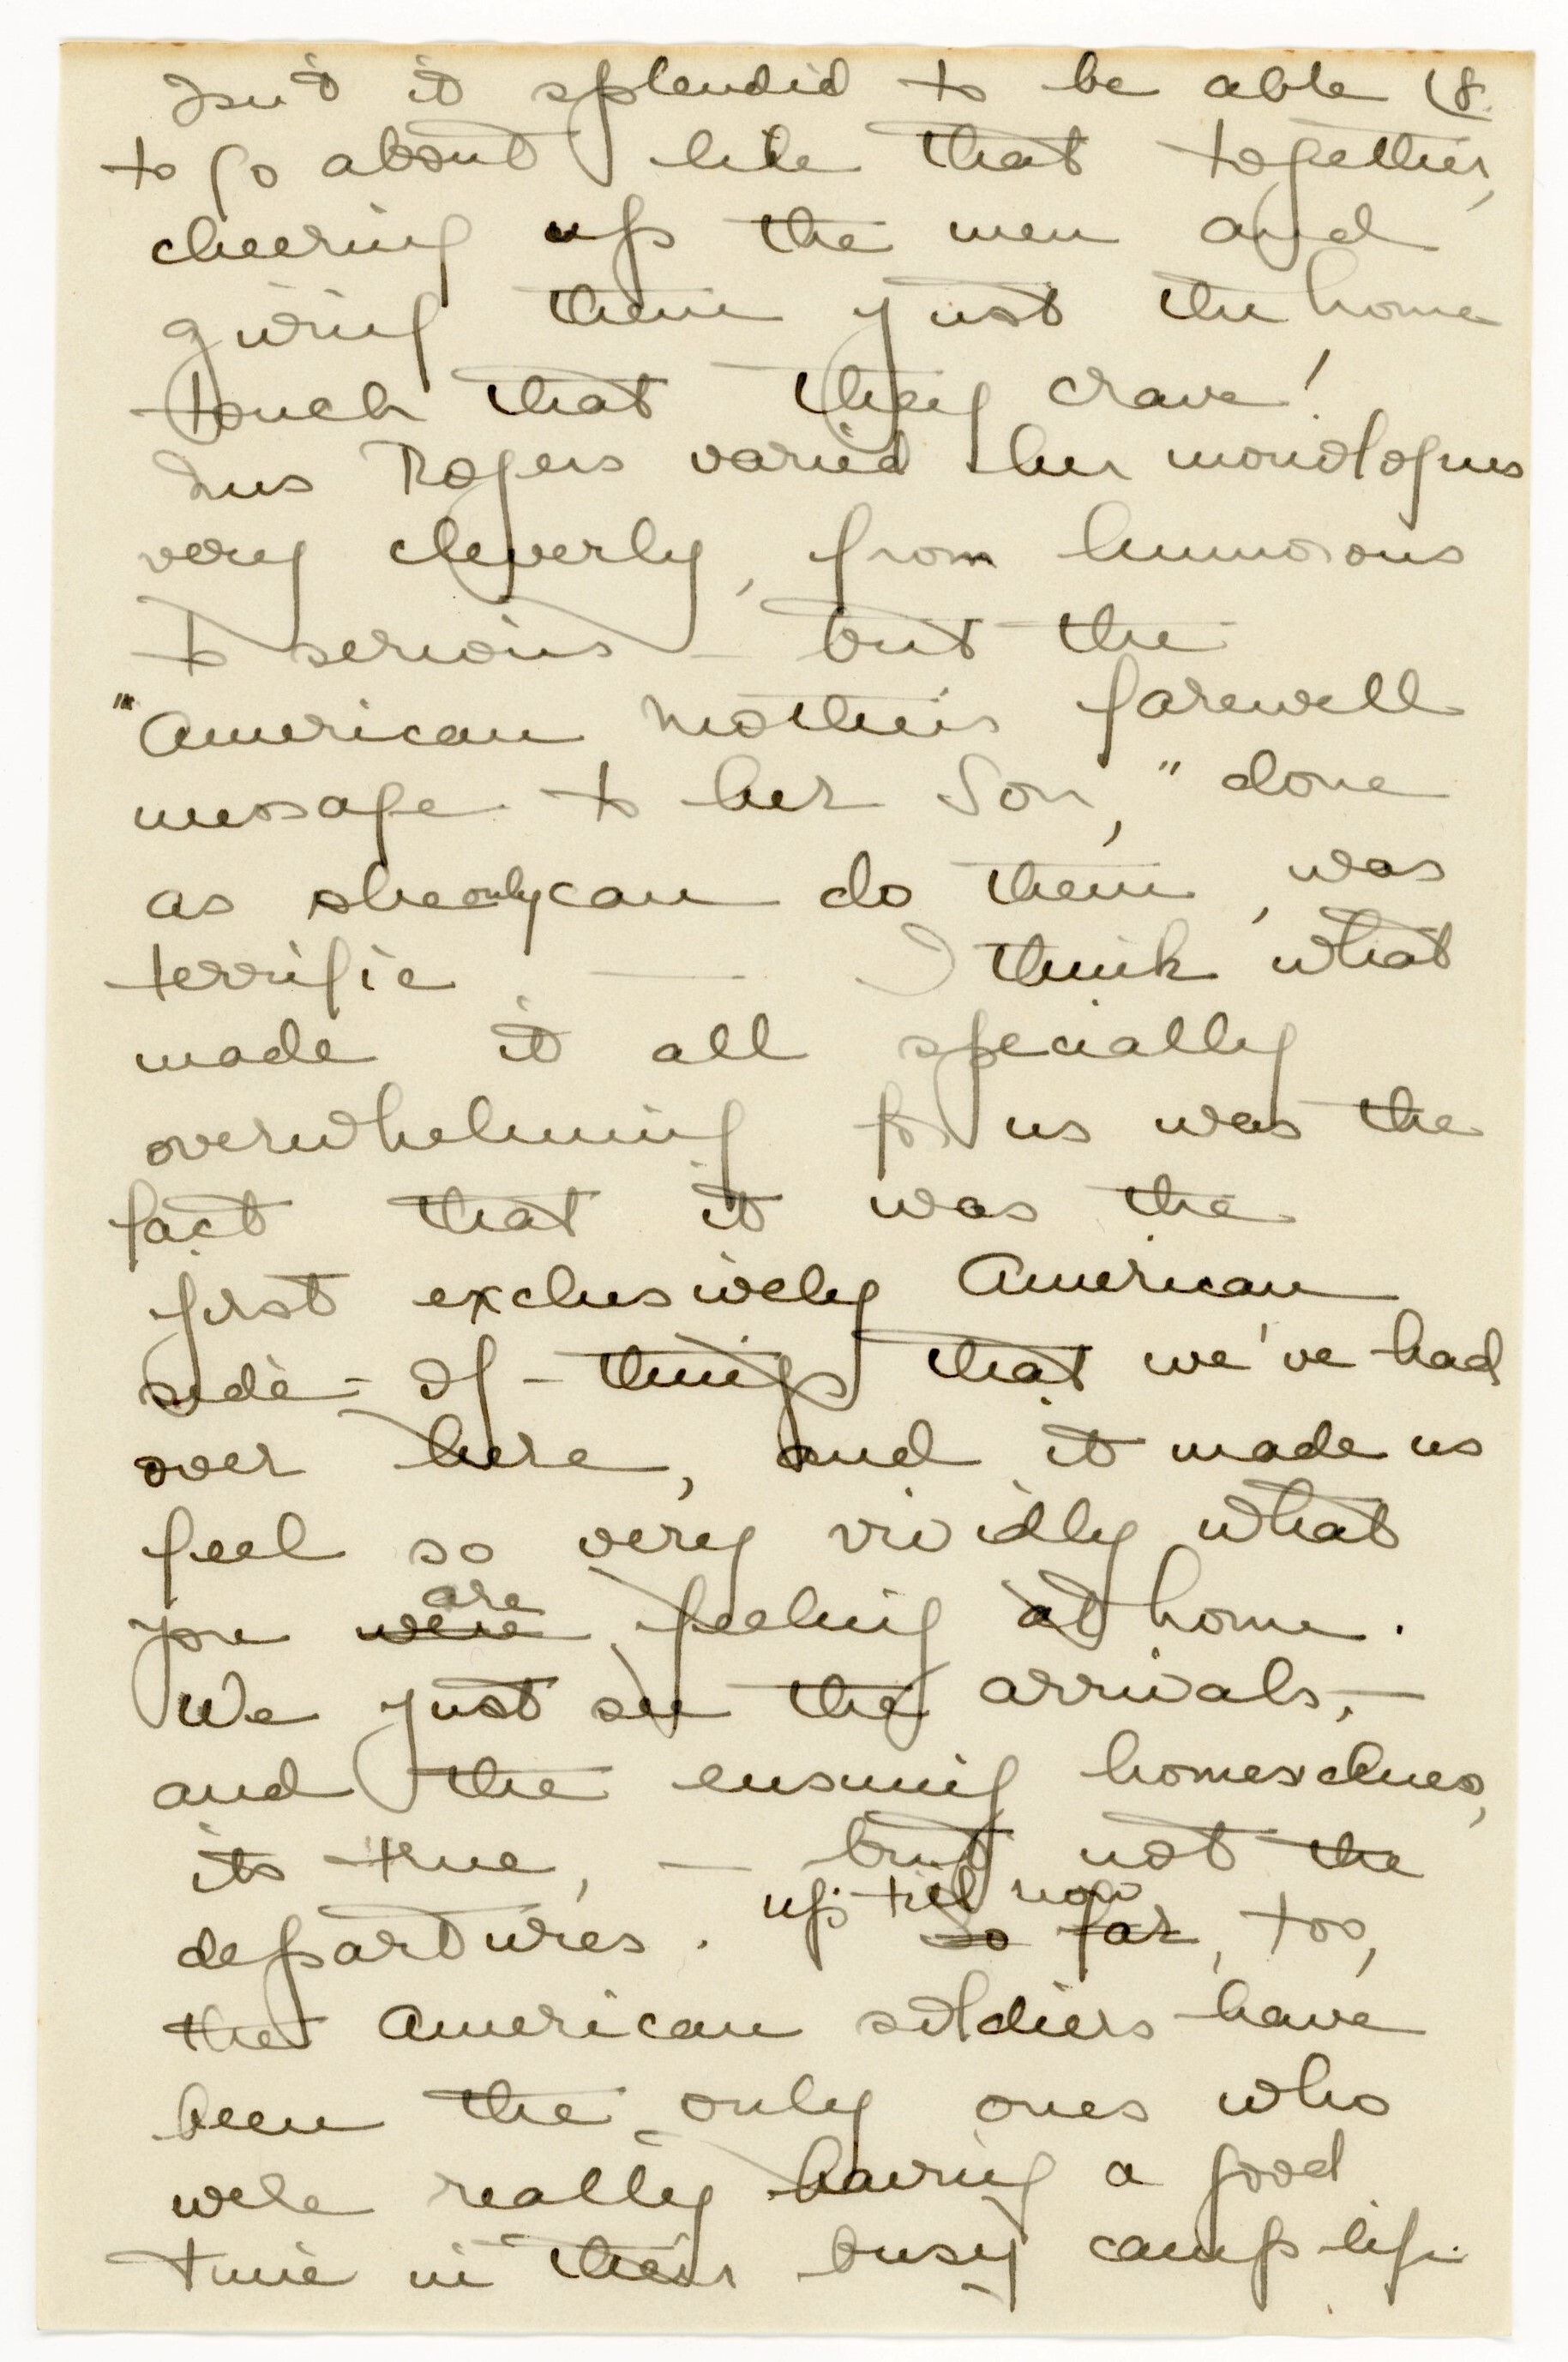 Isn't it splendid to be able (8.
to go about like that together,
cheering up the men and
giving them just the home
touch that they crave!
Rogers varied her monologues
very cleverly, from humorous
to serious – but the
"American Mother's farewell
message to her Son," done
as she only can do them, was
terrific — I think what
made it all specially
overwhelming for us was the
fact that it was the
first exclusively American
side-of-things that we've had
over here, and it made us
feel so very vividly what
you were are feeling at home.
We just see the arrivals, –
and the ensuing homesickness,
its true, – but not the
departures. So far up till now, too,
the American soldiers have
been the only ones who
were really having a good
time in their busy camp life.